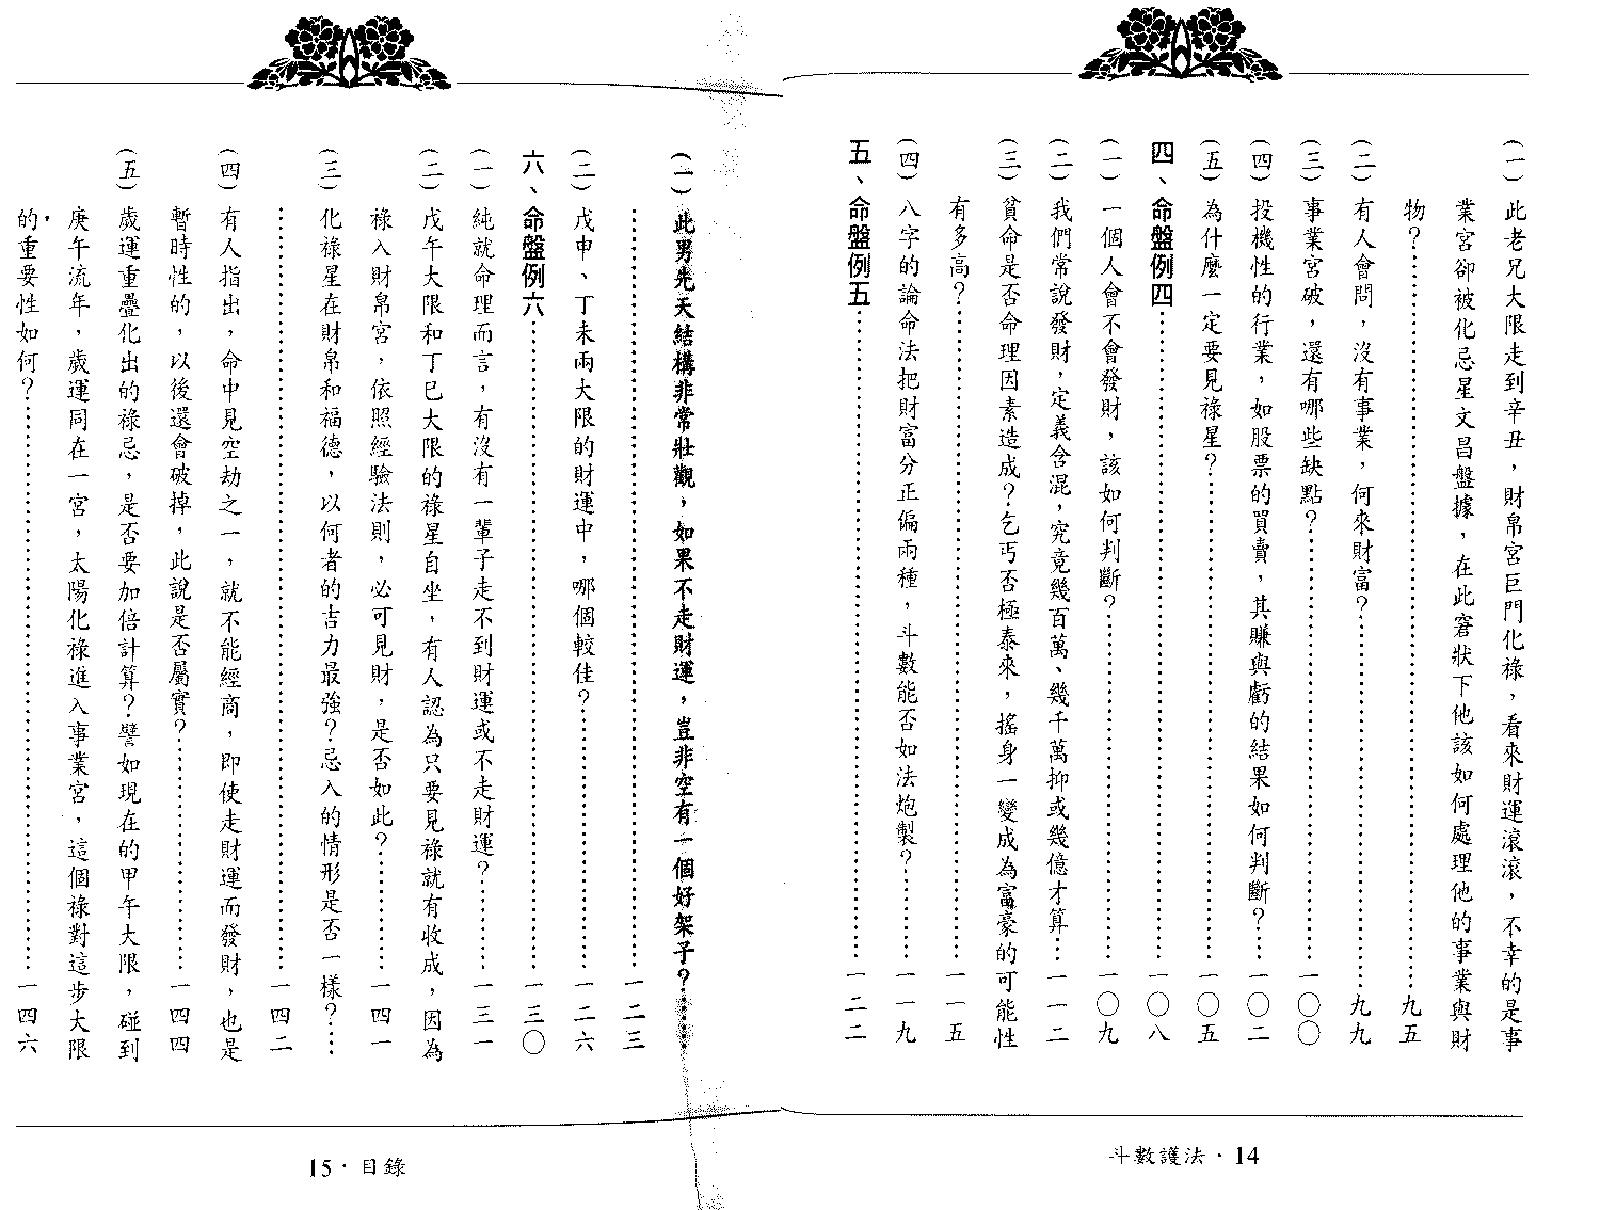 (一)此老兄大限走到辛丑，財帛宮巨門化祿，看來財運滾滾，不幸的是事
業宮卻被化忌星文昌盤據，在此窘狀下他該如何處理他的事業與財
物？……………………………………九五
(二)有人會問，沒有事業，何來財富？……………………九九
(三)事業宮破，還有哪些缺點？……………………一〇〇
(四)投機性的行業，如股票的買賣，其賺與虧的結果如何判斷？…一〇二
(五)為什麼一定要見祿星？……………………一〇五
四、命盤例四……………………………………一〇八
(一)一個人會不會發財，該如何判斷？……………………一〇九
(二)我們常說發財，定義含混，究竟幾百萬、幾千萬抑或幾億才算…一一二
(三)貧命是否命理因素造成？乞丐否極泰來，搖身一變成為富豪的可能性
有多高？……………………………………一一五
(四)八字的論命法把財富分正偏兩種，斗數能否如法炮製？……一一九
五、命盤例五……………………………………一二二
斗數護法・14
(一)此男先天結構非常壯觀，如果不走財運，豈非空有一個好架子？…
……………………………………一二三
(二)戊申、丁未兩大限的財運中，哪個較佳？……………一二六
六、命盤例六……………………………………一三〇
(一)純就命理而言，有沒有一輩子走不到財運或不走財運？……一三一
(二)戊午大限和丁巳大限的祿星自坐，有人認為只要見祿就有收成，因為
祿入財帛宮，依照經驗法則，必可見財，是否如此？………一四一
(三)化祿星在財帛和福德，以何者的吉力最強？忌入的情形是否一樣？……
……………………………………一四二
(四)有人指出，命中見空劫之一，就不能經商，即使走財運而發財，也是
暫時性的，以後還會破掉，此說是否屬實？……………一四四
(五)歲運重疊化出的祿忌，是否要加倍計算？譬如現在的甲午大限，碰到
庚午流年，歲運同在一宮，太陽化祿進入事業宮，這個祿對這步大限
的重要性如何？……………………………………一四六
15・目錄